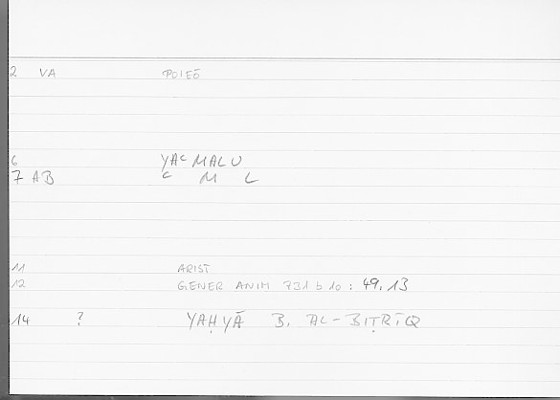 2 VA POIEŌ
6 YAᶜMALU
7 AB ᶜ M L
11 ARIST
12 GENER ANIM 731 b 10 : 49,13
14 ? YAḤYĀ B. AL-BIṬRĪQ